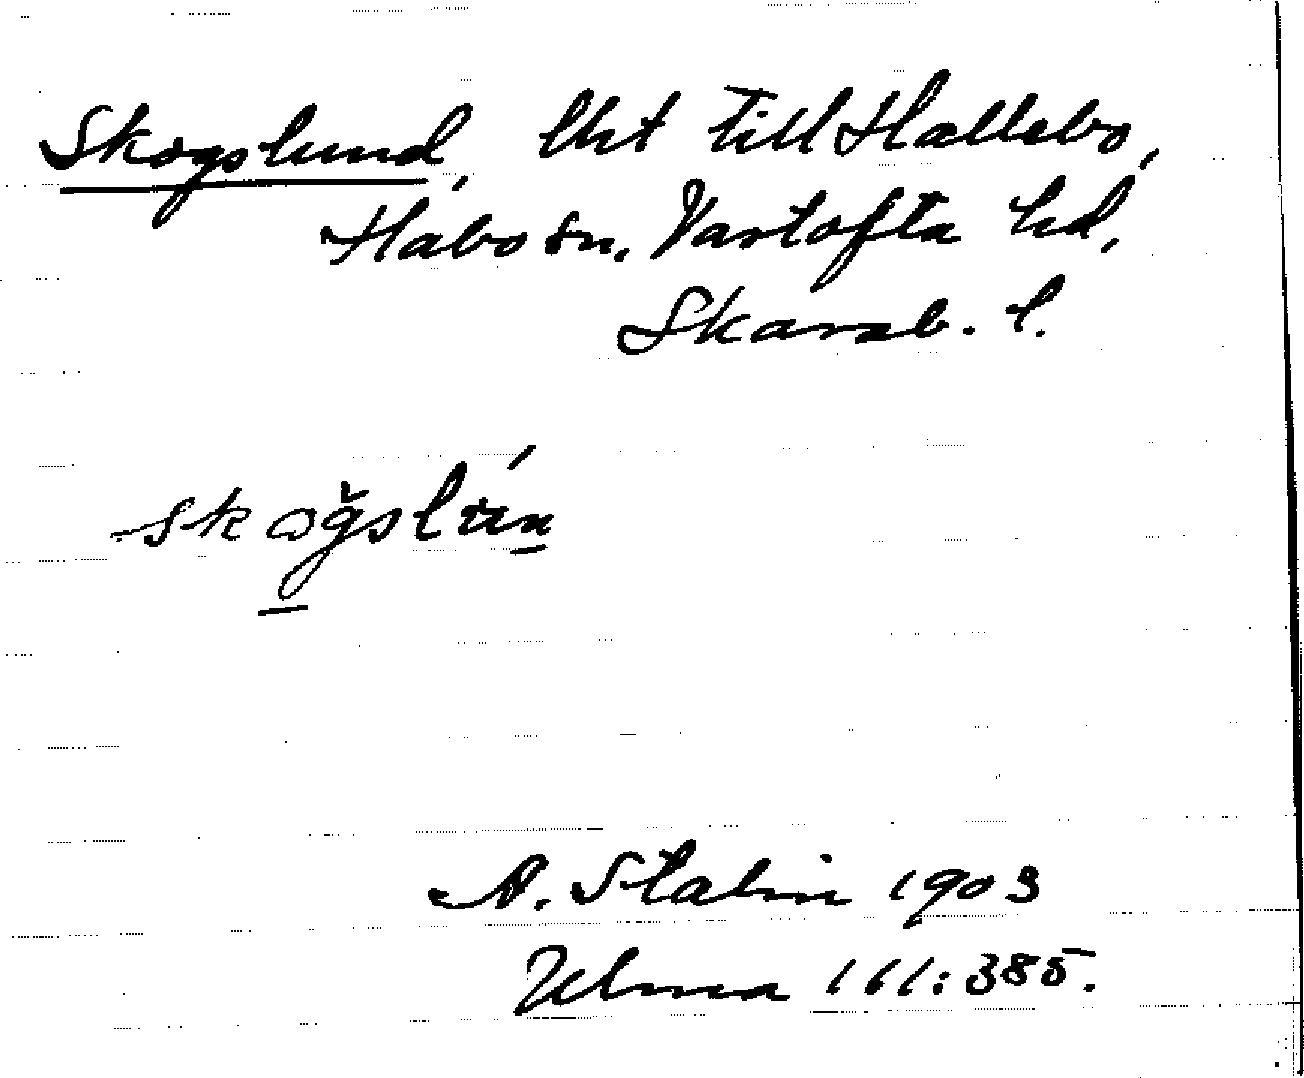 Skogslund, lht till Hallebo,
Habo sn. Vartofta hd,
Skarab. l.
skoğslún
A. Stalin 1903
Ulma 161:385.